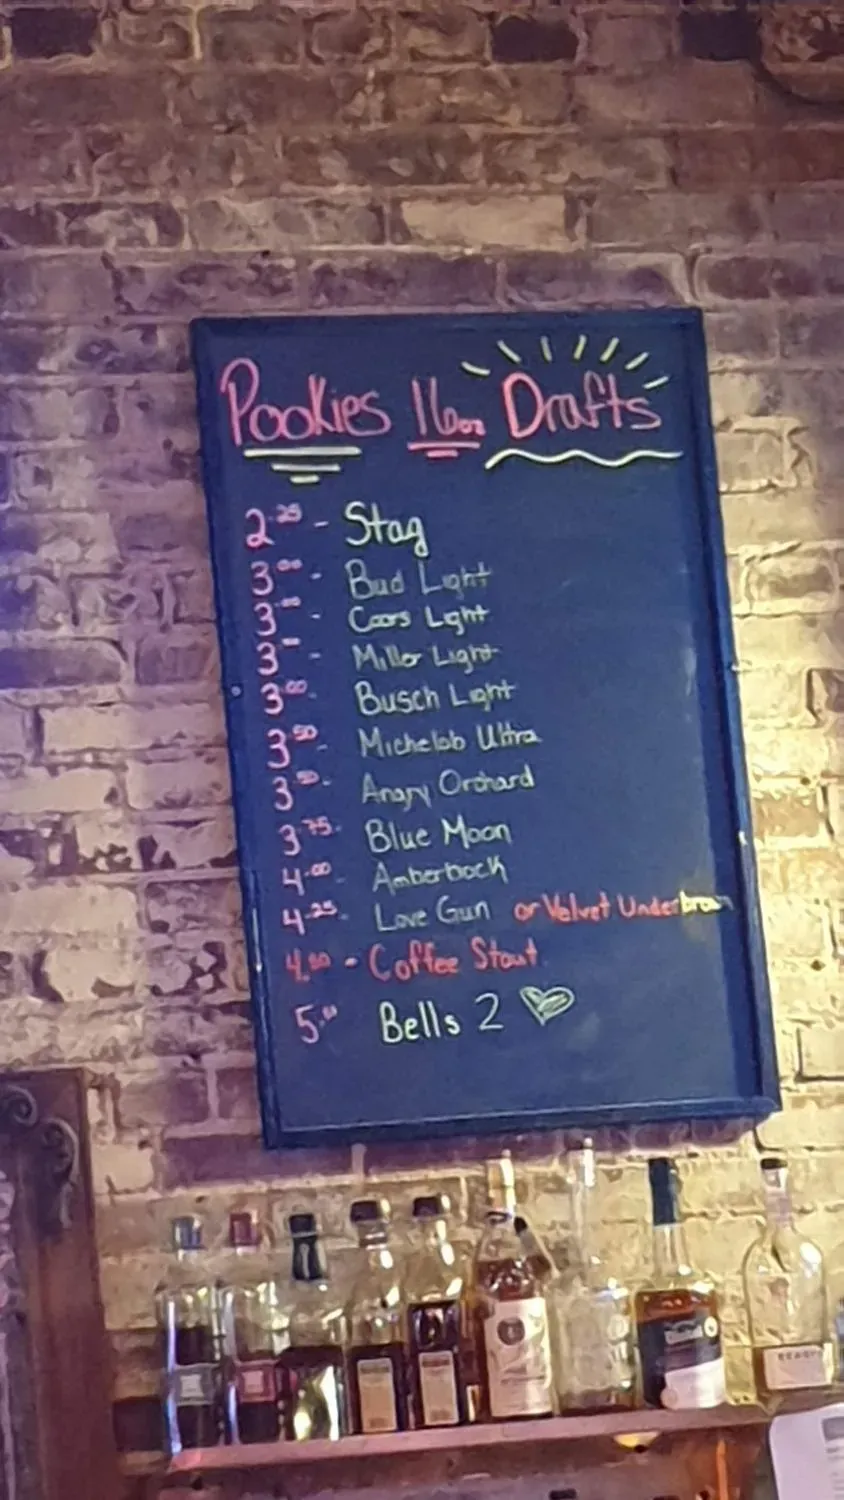 Pookies 16oz Drafts
2.25 - Stag
3.00 - Bud Light
3.00 - Coors Light
3.00 - Miller Light
3.00 - Busch Light
3.50 - Michelob Ultra
3.50 - Angry Orchard
3.75 - Blue Moon
4.00 - Amberbock
4.25 - Love Gun or Velvet Underbrown
4.50 - Coffee Stout
5.00 Bells 2